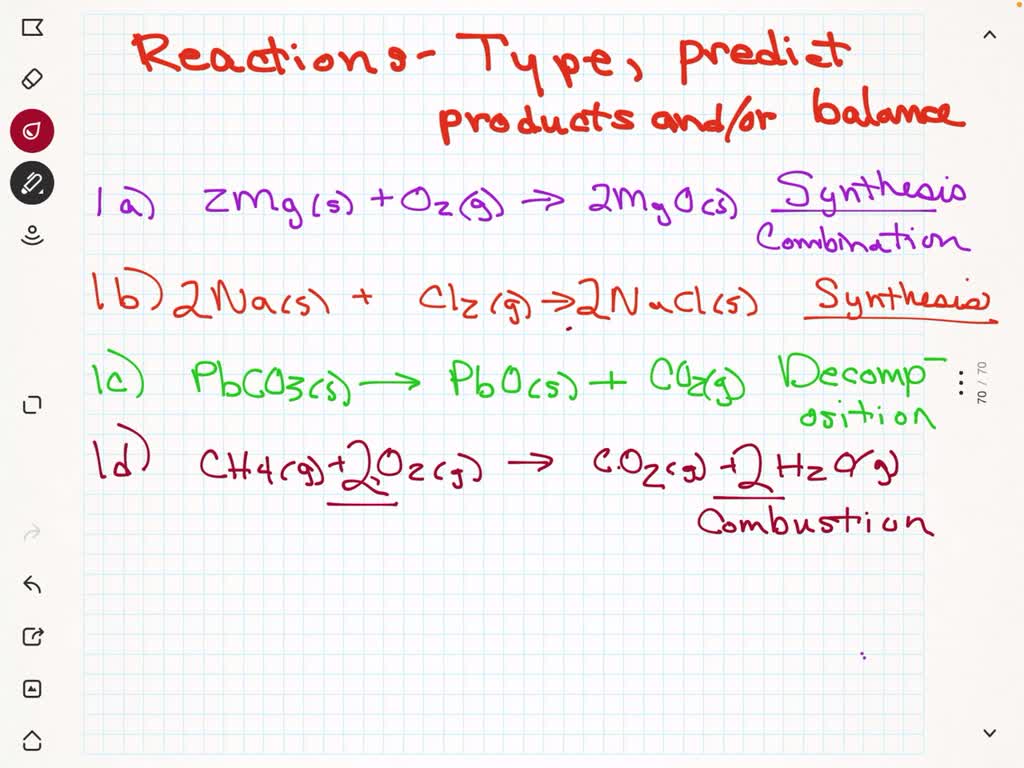 Reactions - Type, predict
products and/or balance
1a) 2Mg(s) + O2(g) → 2MgO(s) Synthesis
Combination
1b) 2Na(s) + Cl2(g) → 2NaCl(s) Synthesis
1c) PbCO3(s) → PbO(s) + CO2(g) Decomp-
osition
70 / 70
1d) CH4(g) + 2O2(g) → CO2(g) + 2H2O(g)
Combustion